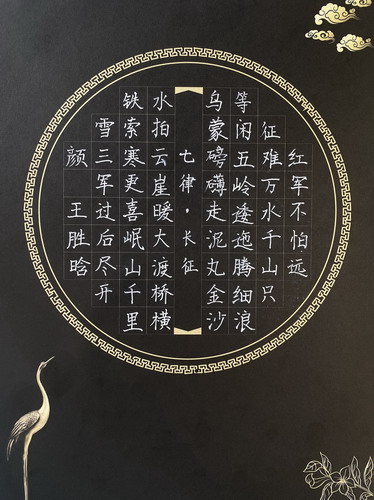 红军不怕远
征难万水千山只
等闲五岭逶迤腾细浪
乌蒙磅礴走泥丸金沙
七律·长征
水拍云崖暖大渡桥横
铁索寒更喜岷山千里
雪三军过后尽开
颜 王胜晗